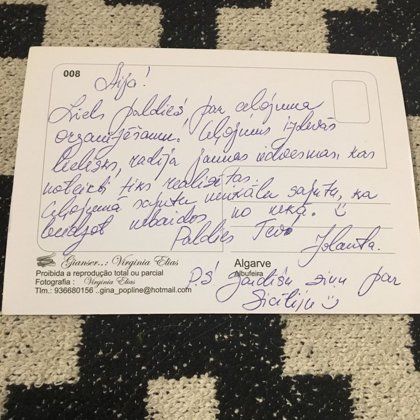 008
Aija!
Liels paldies, par ceļojuma
organizēšanu. Ceļojums izdevās
lielisks, radīja jaunas iedvesmas, kas
noteikti tiks realizētas.
Ceļojumā sajutu sajūtu, ka
beidzot nebaidos no nekā. ☺
Paldies Tev! Jolanta.
Gianser..: Virginia Elias
Proibida a reprodução total ou parcial
Fotografia : Virginia Elias
Tlm.: 936680156 .gina_popline@hotmail.com
Algarve
Albufeira
P.S! Gaidīšu ziņu par
Sicīliju ☺